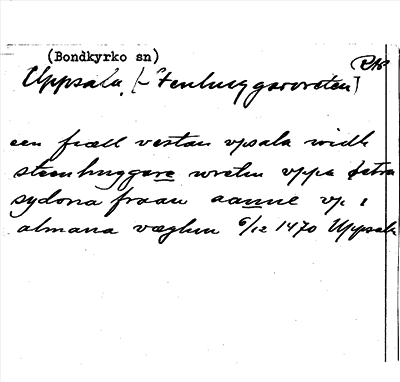 (Bondkyrko sn)
RAP
Uppsala. [-Stenhuggarvreten]
een fiæll vestan vpsala widh
steenhuggare wreten vppa fetra
sydona fraan aanne vp i
almana væghen 6/12 1470 Uppsala